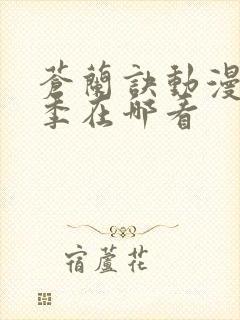 蒼蘭訣動漫
季在哪看
宿蘆花